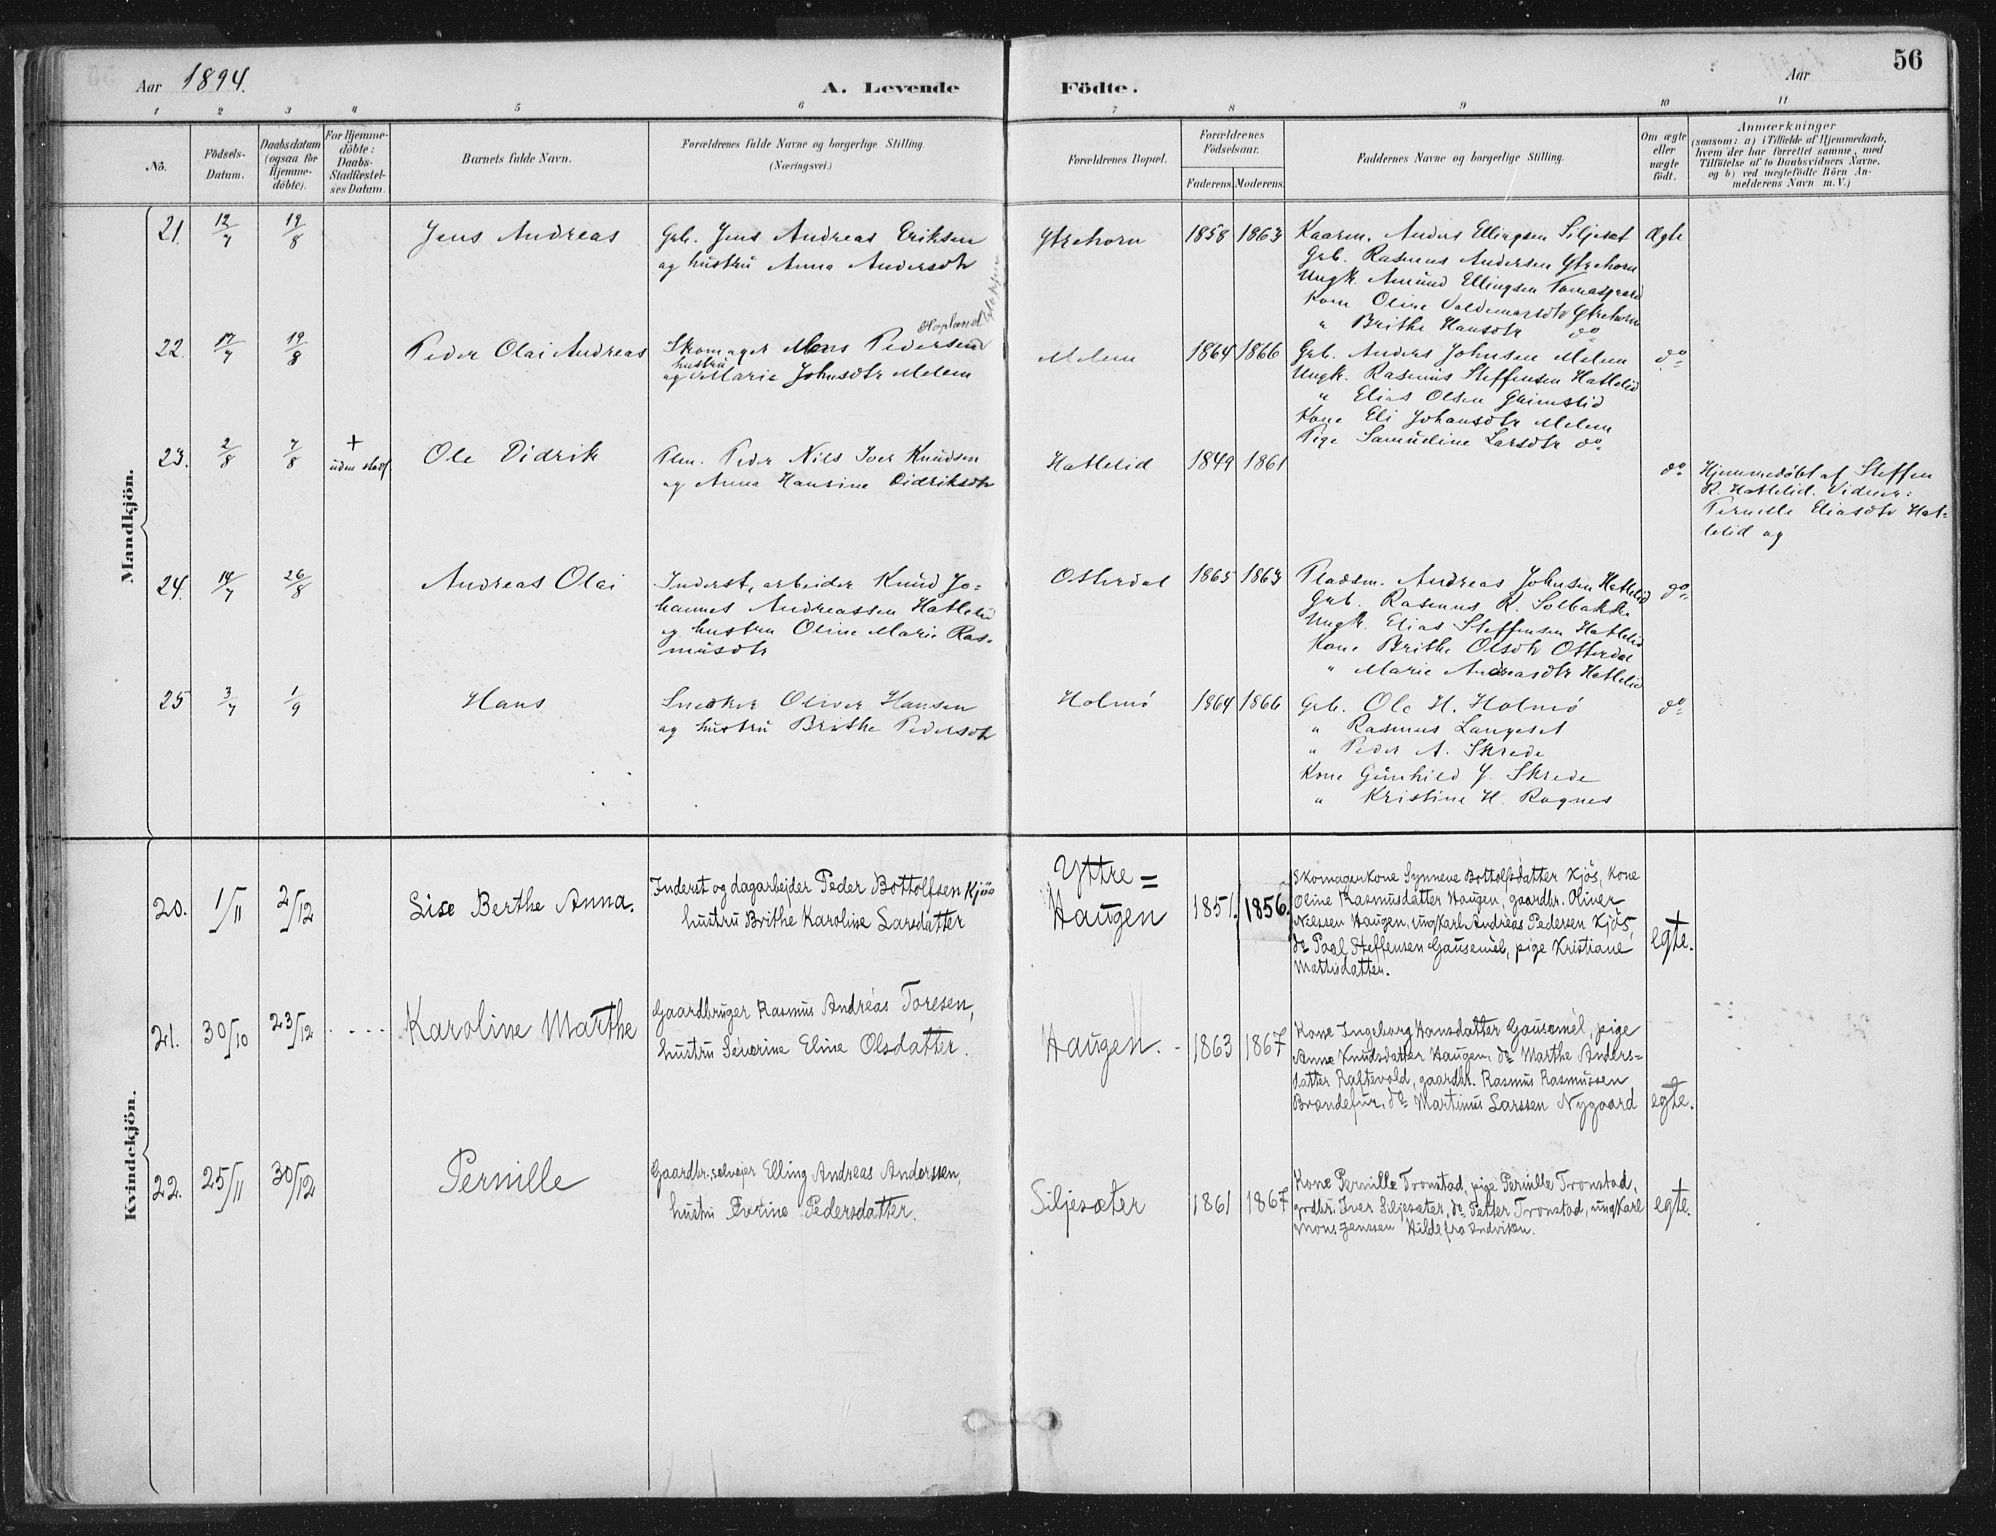 Aar 1894.
A. Levende Födte.
Aar
56
1 2 3 4 5 6 7 8 9 10 11
No.
Födsels-
Datum.
Daabsdatum
(ogsaa for
Hjemme-
döbte).
For Hjemme-
döbte:
Daabs-
Stadfæstel-
ses Datum.
Barnets fulde Navn.
Forældrenes fulde Navne og borgerlige Stilling.
(Næringsvei.)
Forældrenes Bopæl.
Forældrenes
Födselsaar.
Faderens. Moderens.
Faddernes Navne og borgerlige Stilling.
Om ægte
eller
uægte
födt.
Anmærkninger
(saasom: a) i Tilfælde af Hjemmedaab,
hvem der har forrettet samme, med
Tilföielse af to Daabsvidners Navne.
og b) ved uægtefödte Börn An-
melderens Navn m. V.)
Mandkjön.
21. 12/7 19/8
Jens Andreas
Grb. Jens Andreas Eriksen
og hustru Anna Andersdtr
Ytrehorn
1858 1863
Kaarm. Anders Ellingsen Siljeset
Grb. Rasmus Andersen Ytrehorn
Ungk. Amund Ellingsen Tomasgaard
Kone Oline Valdemarsdtr Ytrehorn
" Brithe Hansdtr do
Ægte
22. 17/7 19/8
Peder Olai Andreas
Hopland
Skomager Mons Pedersen
hustru
og Marie Johnsdtr Melem
Melem
1864 1866
Grb. Anders Johnsen Melem
Ungk. Rasmus Steffensen Hatlelid
" Elias Olsen Gleimslid
Kone Eli Johansdtr Melem
Pige Samudine Larsdtr do.
do
23. 2/8 7/8
+
uden stadf
Ole Didrik
Plm. Peder Nils Iver Knudsen
og Anna Hansine Didriksdtr
Hatlelid
1849 1861
do
Hjemmedöbt af Steffen
R. Hatlelid. Vidner:
Pernille Eliasdtr Hat=
lelid og
24. 14/7 26/8
Andreas Olai
Inderst, arbeider Knud Jo=
hannes Andreassen Hatlelid
og hustru Oline Marie Ras=
musdtr
Otterdal
1865 1863
Pladsm. Andreas Johnsen Hatlelid
Grb. Rasmus R. Solbakke
Ungk. Elias Steffensen Hatlelid
Kone Brithe Olsdtr Otterdal
" Marie Andreasdtr Hatlelid
do
25 3/7 1/9
Hans
Snedker Oliver Hansen
og hustru Brithe Pedersdtr
Holmö
1864 1866
Grb. Ole H. Holmö
" Rasmus Langeset
" Peder A. Skrede
Kone Gunhild J. Skrede
" Kristine H. Rognes
do
Kvindekjön.
20. 1/11 2/12
Lise Berthe Anna.
Inderst og dagarbejder Peder Bottolfsen Kjös
hustru Brithe Karoline Larsdatter
Yttre=
Haugen
1851. 1856.
Skomagerkone Synneve Bottolfsdatter Kjös, Kone
Oline Rasmusdatter Haugen, gaardbr. Oliver
Nilssen Haugen, ungkarl Andreas Pedersen Kjös,
do Paal Steffensen Gausemel, pige Kristiane
Mattisdatter.
egte.
21. 30/10 23/12
Karoline Marthe
Gaardbruger Rasmus Andreas Toresen,
hustru Severine Eline Olsdatter.
Haugen.
1863 1867
Kone Ingeborg Hansdatter Gausemel, pige
Anne Knudsdatter Haugen, do Marthe Anders=
datter Raftevold, gaardbr. Rasmus Rasmussen
Brandefur, do Martinus Larssen Nygaard
egte.
22. 25/11 30/12
Pernille
Gaardbr. selvejer Elling Andreas Anderssen,
hustru Perine Pedersdatter.
Siljesæter
1861 1867
Kone Pernille Tronstad, pige Pernille Tronstad,
grdbr. Iver Siljesæter, do Petter Tronstad, ungkarl
Mons Jenssen Hilde fra Indviken.
egte.